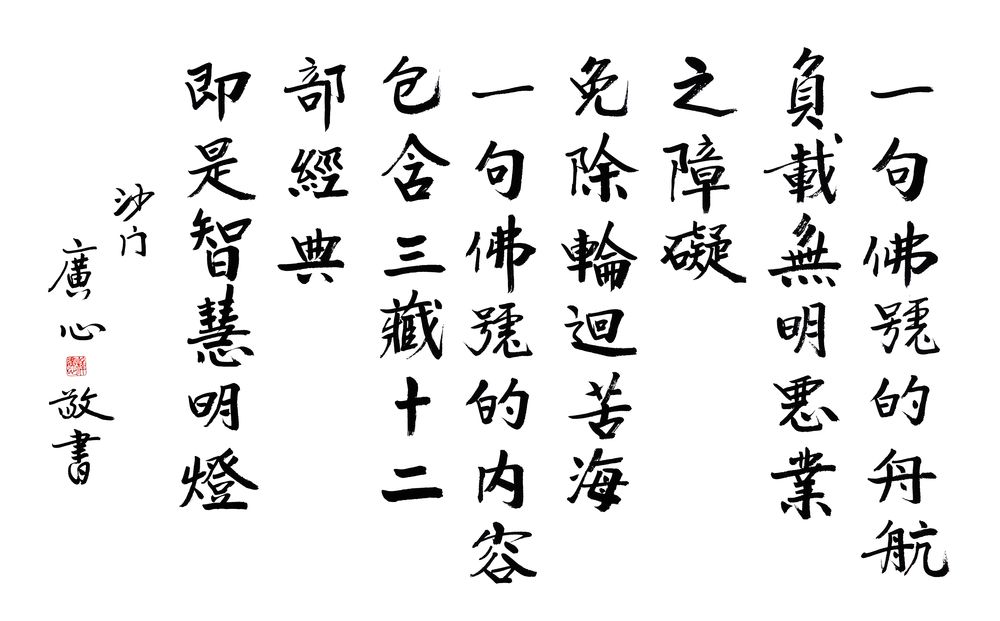 一句佛號的舟航
負載無明惡業
之障礙
免除輪迴苦海
一句佛號的内容
包含三藏十二
部經典
即是智慧明燈
沙门
廣心
敬書